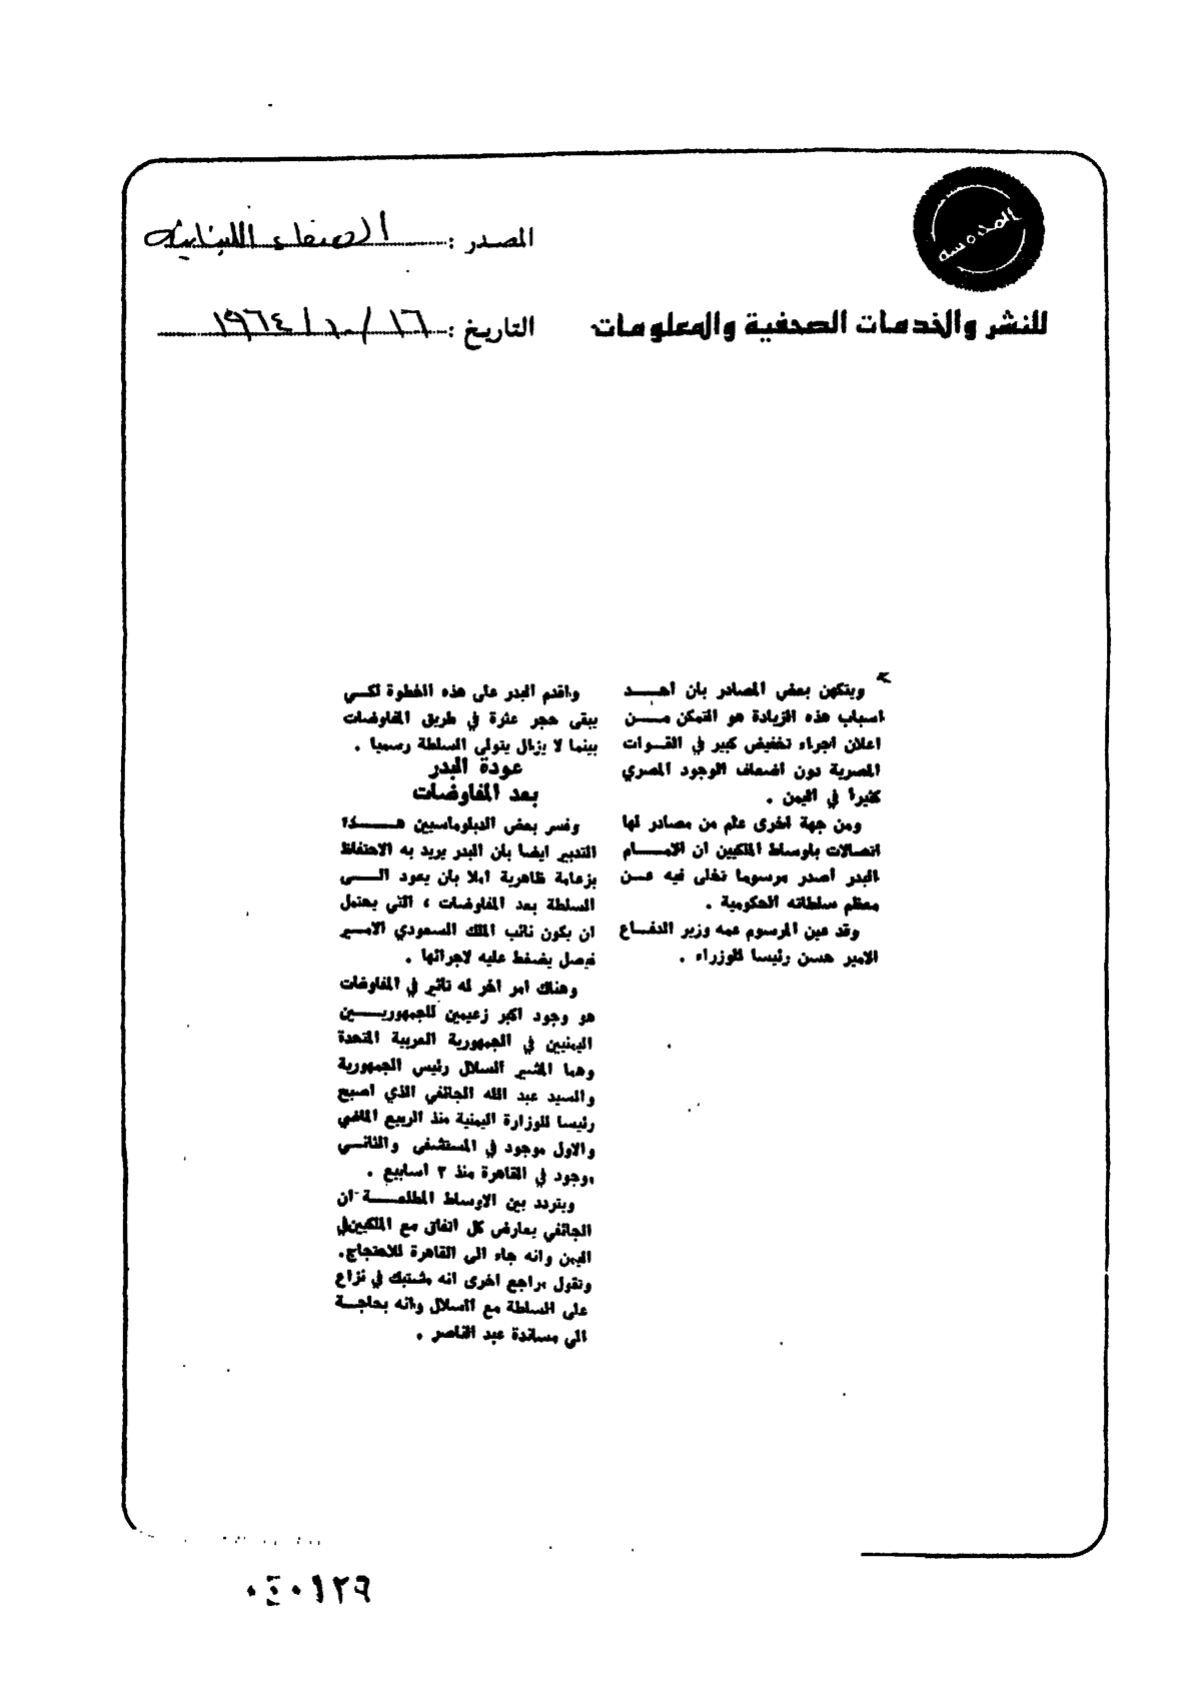 المصدر : الصفاء اللبنانية
التاريخ : ١٦ / ١٠ / ١٩٦٤
للنشر والخدمات الصحفية والمعلومات
ويتكهن بعض المصادر بان احد
اسباب هذه الزيادة هو التمكن من
اعلان اجراء تخفيض كبير في القوات
المصرية دون اضعاف الوجود المصري
كثيرا في اليمن .
ومن جهة اخرى علم من مصادر لها
اتصالات باوساط الملكيين ان الامام
البدر اصدر مرسوما تخلى فيه عن
معظم سلطاته الحكومية .
وقد عين المرسوم عمه وزير الدفاع
الامير حسن رئيسا للوزراء .
واقدم البدر على هذه الخطوة لكي
يبقى حجر عثرة في طريق المفاوضات
بينما لا يزال يتولى السلطة رسميا .
عودة البدر
بعد المفاوضات
وفسر بعض الدبلوماسيين هذا
التدبير ايضا بان البدر يريد به الاحتفاظ
بزعامة ظاهرية املا بان يعود الى
السلطة بعد المفاوضات ، التي يحتمل
ان يكون نائب الملك السعودي الامير
فيصل يضغط عليه لاجرائها .
وهناك امر اخر له تاثير في المفاوضات
هو وجود اكبر زعيمين للجمهوريين
اليمنيين في الجمهورية العربية المتحدة
وهما المشير السلال رئيس الجمهورية
والسيد عبد الله الجائفي الذي اصبح
رئيسا للوزارة اليمنية منذ الربيع الماضي
والاول موجود في المستشفى والثاني
موجود في القاهرة منذ ٣ اسابيع .
ويتردد بين الاوساط المطلعة ان
الجائفي يعارض كل اتفاق مع الملكيين في
اليمن وانه جاء الى القاهرة للاحتجاج.
وتقول مراجع اخرى انه مشتبك في نزاع
على السلطة مع السلال وانه بحاجة
الى مساندة عبد الناصر .